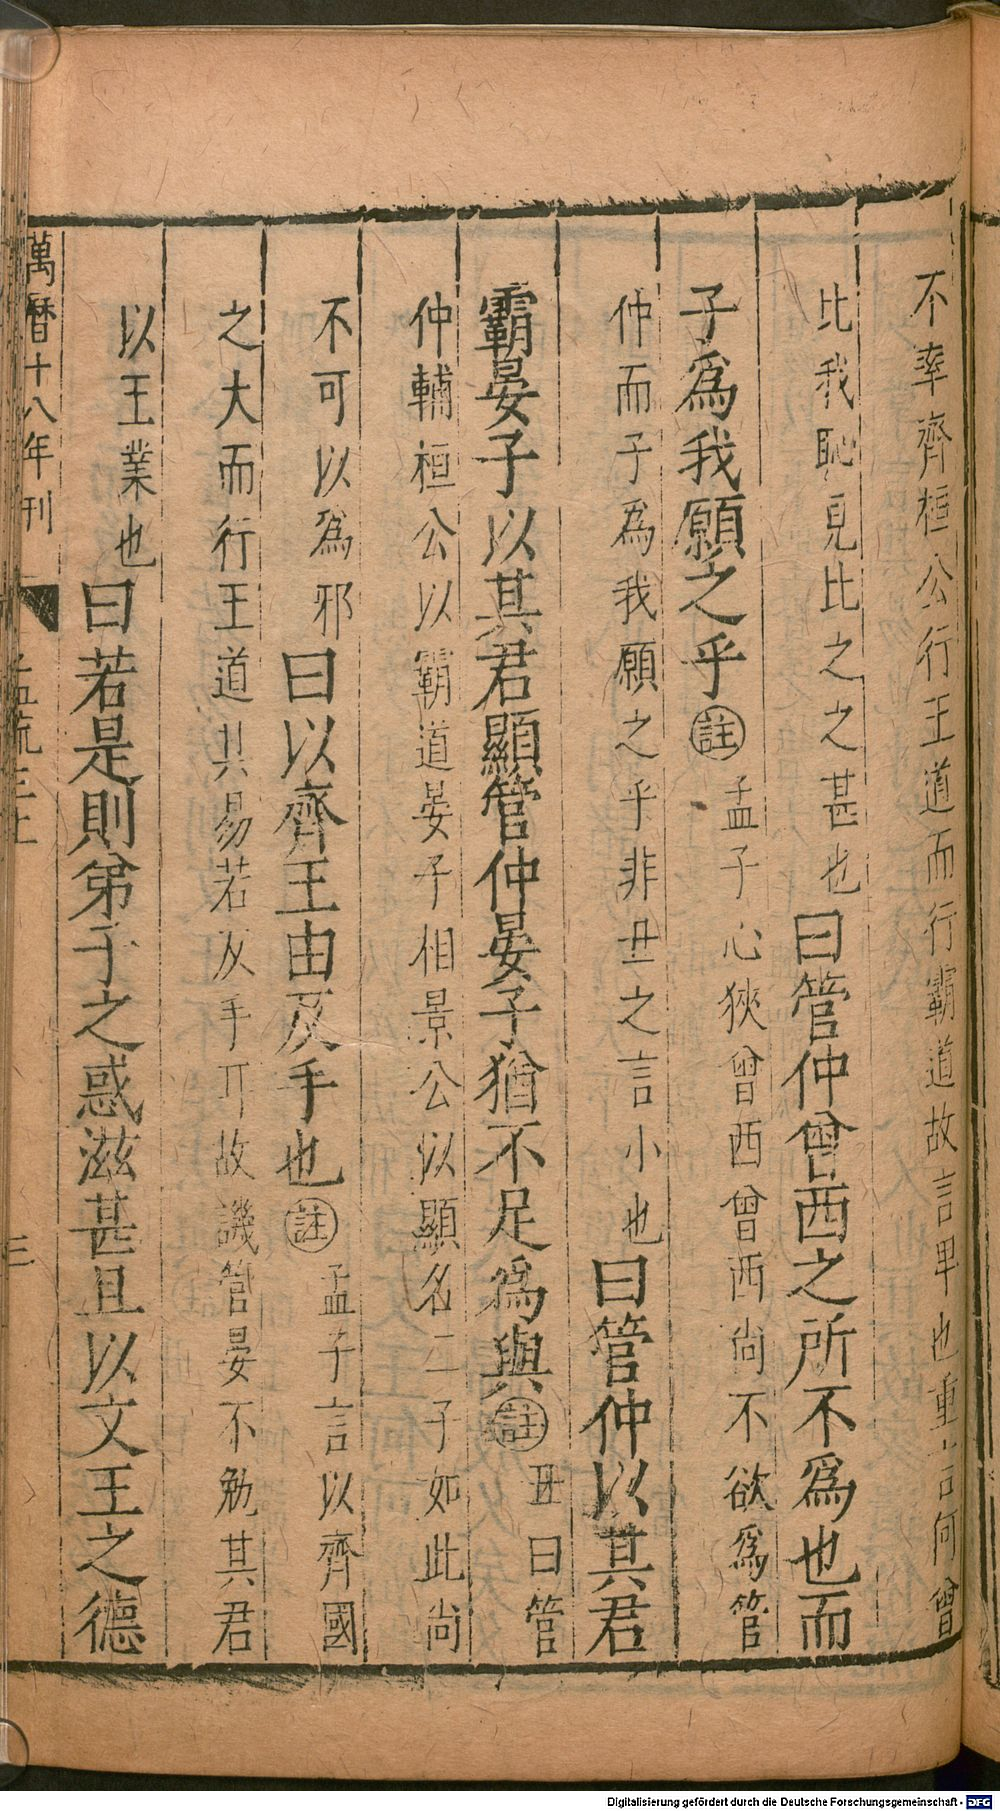 不率齊桓公行王道而行霸道故言卑也重言何曾
比我恥見比之之甚也曰管仲曾西之所不為也而
子為我願之乎註孟子心狹曾西曾西尚不欲為管
仲而子為我願之乎非丑之言小也曰管仲以其君
霸晏子以其君顯管仲晏子猶不足為與註丑曰管
仲輔桓公以霸道晏子相景公以顯名二子如此尚
不可以為邪曰以齊王由反手也註孟子言以齊國
之大而行王道其易若反手耳故譏管晏不勉其君
以王業也曰若是則弟子之惑滋甚且以文王之德
萬曆十八年刊 孟疏三上 三
Digitalisierung gefördert durch die Deutsche Forschungsgemeinschaft - DFG